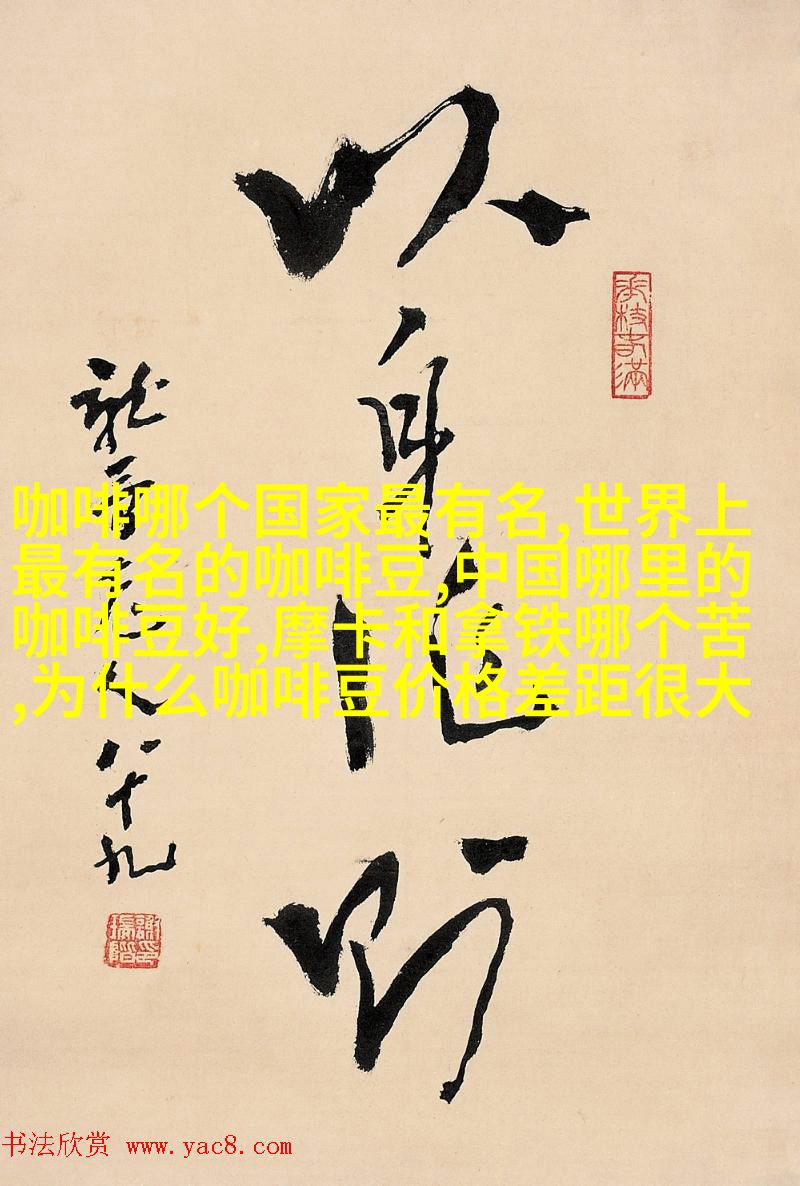 以身作则
承枝寄满
八十九
咖啡哪个国家最有名,世界上
最有名的咖啡豆,中国哪里的
咖啡豆好,摩卡和拿铁哪个苦
,为什么咖啡豆价格差距很大
书法欣赏 www.yac8.com